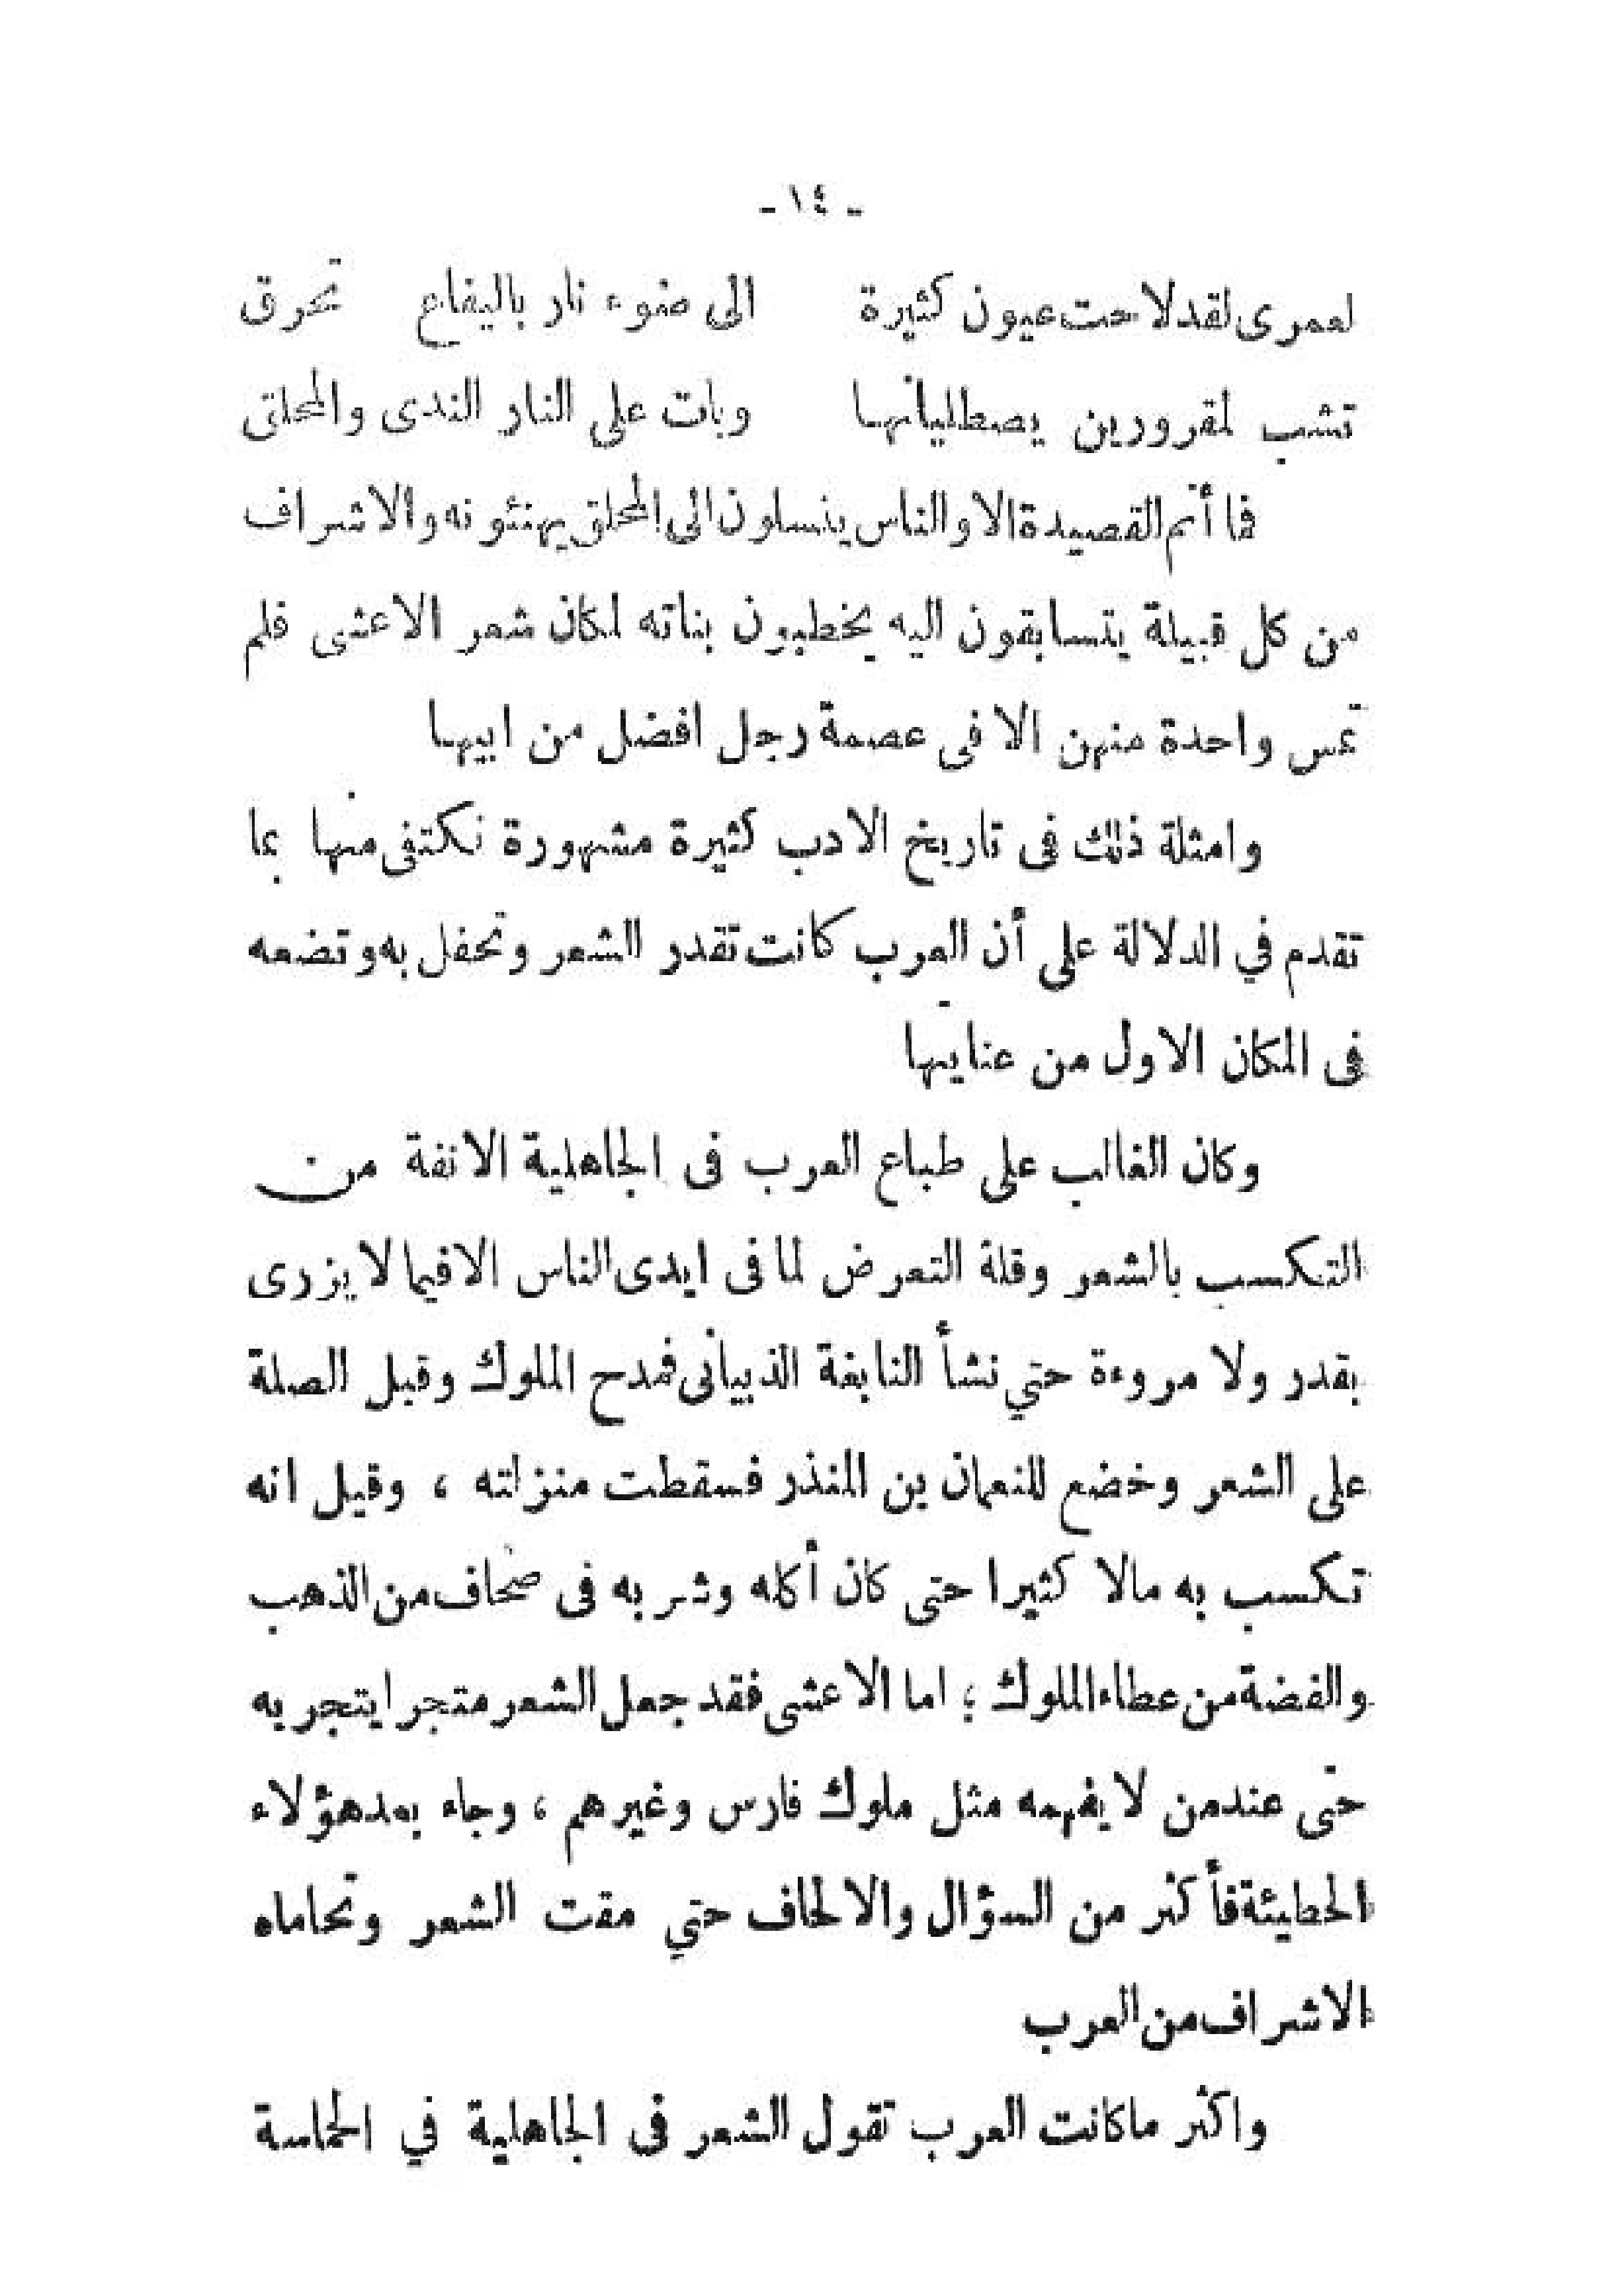 - ١٤ -
لعمرى لقد لاحت عيون كثيرة الى ضوء نار باليفاع تحرق
تشب لمقرورين يصطليانها وبات على النار الندى والمحلق
فما أتم القصيدة الا والناس ينسلون الى المحلق يهنئونه والاشراف
من كل قبيلة يتسابقون اليه يخطبون بناته لمكان شعر الاعشى فلم
تمس واحدة منهن الا فى عصمة رجل افضل من ابيها
وامثلة ذلك فى تاريخ الادب كثيرة مشهورة نكتفى منها بما
تقدم في الدلالة على أن العرب كانت تقدر الشعر وتحفل به وتضعه
فى المكان الاول من عنايتها
وكان الغالب على طباع العرب فى الجاهلية الانفة من
التكسب بالشعر وقلة التعرض لما فى ايدى الناس الا فيما لا يزرى
بقدر ولا مروءة حتي نشأ النابغة الذبيانى فمدح الملوك وقبل الصلة
على الشعر وخضع للنعمان بن المنذر فسقطت منزلته ، وقيل انه
تكسب به مالا كثيرا حتى كان أكله وشربه فى صحاف من الذهب
والفضة من عطاء الملوك ؛ اما الاعشى فقد جعل الشعر متجرا يتجر به
حتى عند من لا يفهمه مثل ملوك فارس وغيرهم ، وجاء بعد هؤلاء
الحطيئة فأكثر من السؤال والالحاف حتي مقت الشعر وتحاماه
الاشراف من العرب
واكثر ما كانت العرب تقول الشعر فى الجاهلية في الحماسة